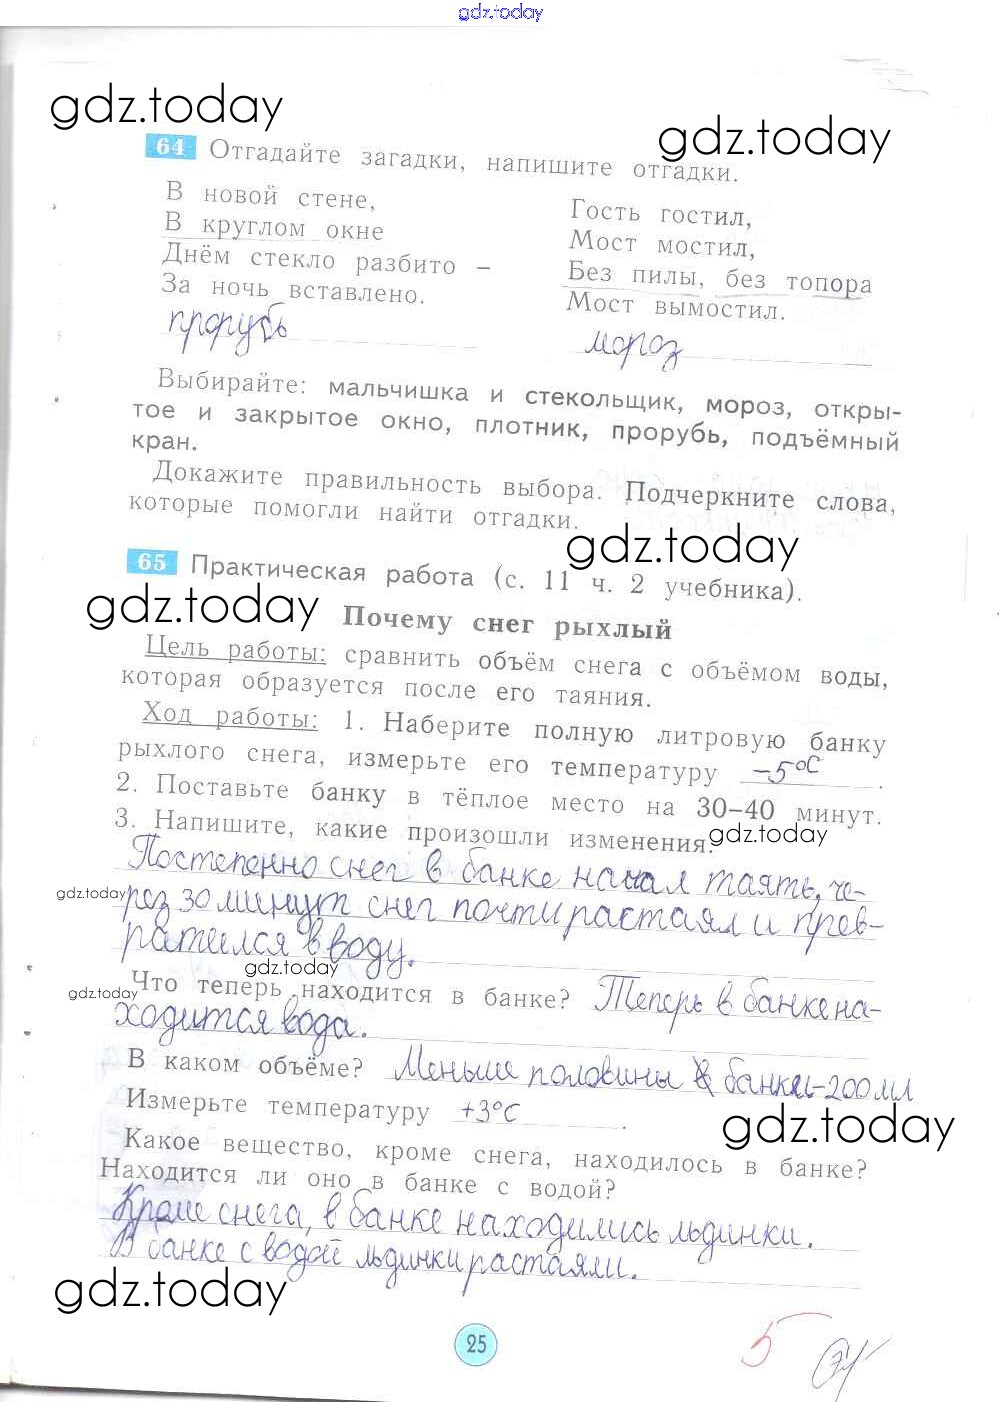 gdz.today
gdz.today
gdz.today
64 Отгадайте загадки, напишите отгадки.
В новой стене,
В круглом окне
Днём стекло разбито –
За ночь вставлено.
прорубь
Гость гостил,
Мост мостил,
Без пилы, без топора
Мост вымостил.
мороз
Выбирайте: мальчишка и стекольщик, мороз, откры-
тое и закрытое окно, плотник, прорубь, подъёмный
кран.
Докажите правильность выбора. Подчеркните слова,
которые помогли найти отгадки.
gdz.today
65 Практическая работа (с. 11 ч. 2 учебника).
gdz.today
Почему снег рыхлый
Цель работы: сравнить объём снега с объёмом воды,
которая образуется после его таяния.
Ход работы: 1. Наберите полную литровую банку
рыхлого снега, измерьте его температуру –5°С.
2. Поставьте банку в тёплое место на 30–40 минут.
3. Напишите, какие произошли изменения.
gdz.today
Постепенно снег в банке начал таять, че-
gdz.today
рез 30 минут снег почти растаял и прев-
ратился в воду.
gdz.today
Что теперь находится в банке? Теперь в банке на-
gdz.today
ходится вода.
В каком объёме? Меньше половины банки-200мл
Измерьте температуру +3°С.
gdz.today
Какое вещество, кроме снега, находилось в банке?
Находится ли оно в банке с водой?
Кроме снега, в банке находились льдинки.
В банке с водой льдинки растаяли.
gdz.today
25
5